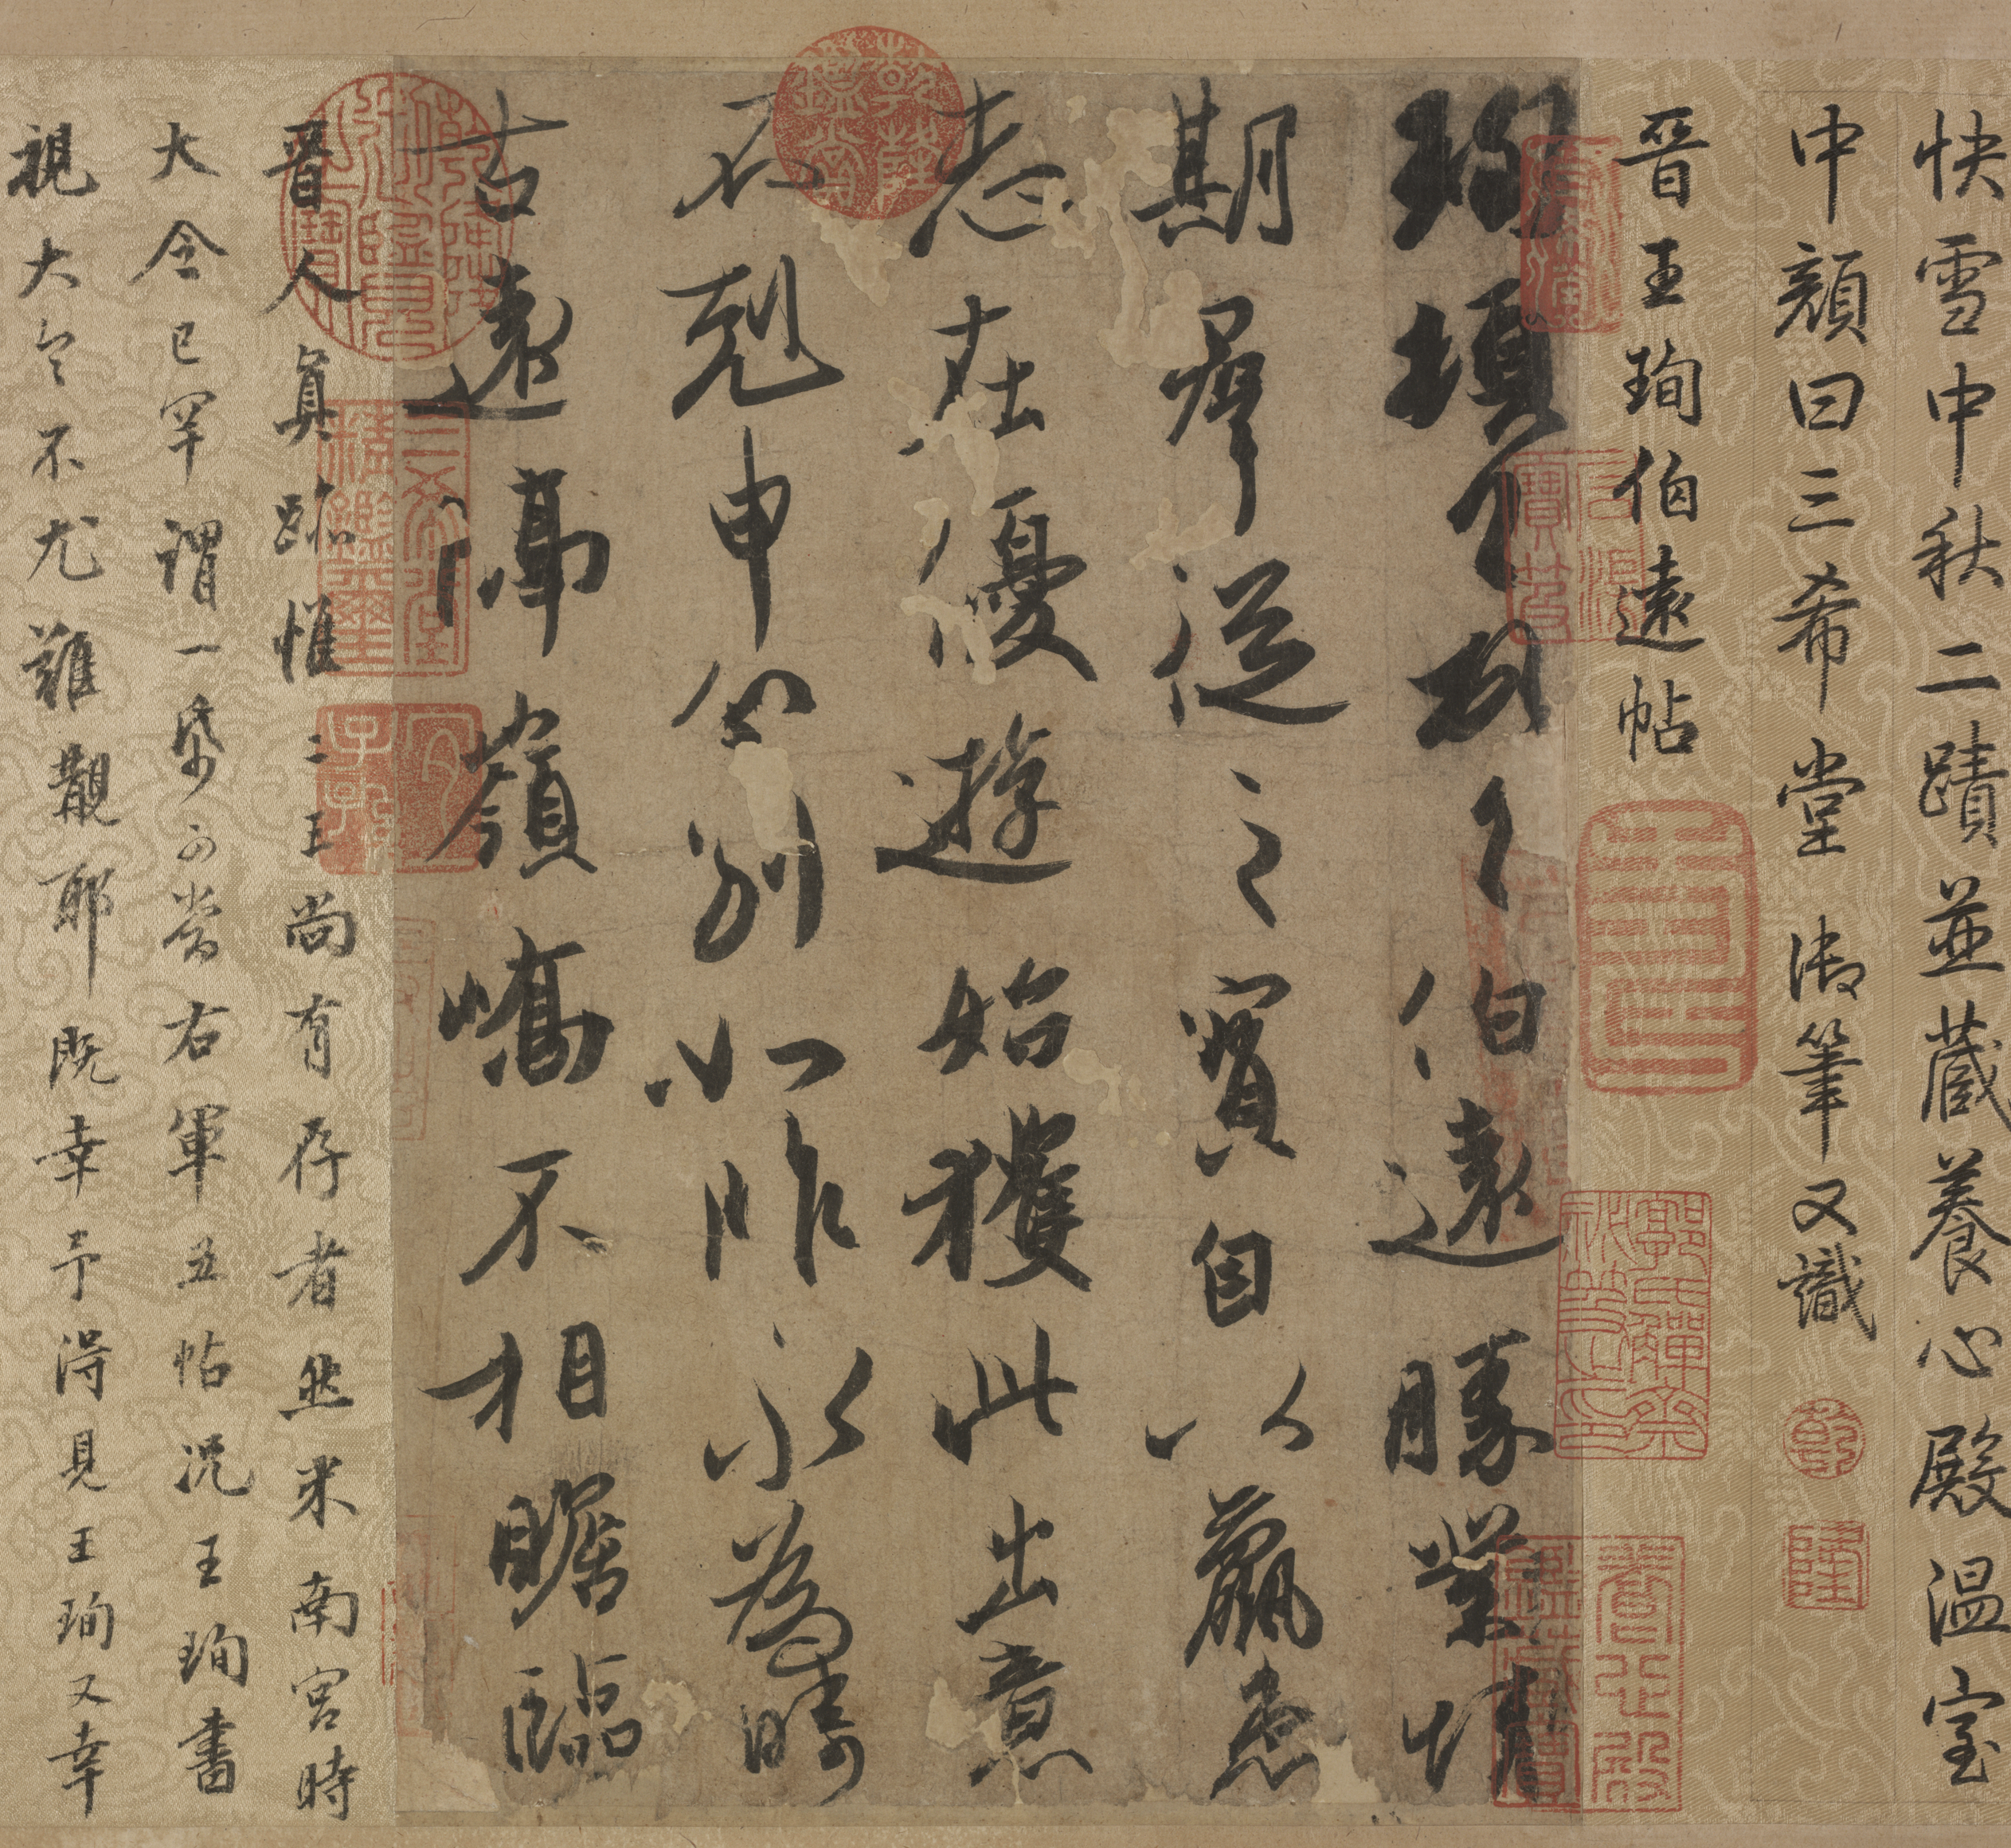 快雪中秋二蹟並藏養心殿溫室
中顏曰三希堂御筆又識
晉王珣伯遠帖
珣頓首頓首伯遠勝業情
期羣從之寶自以羸患
志在優遊始獲此出意
不剋申分別如昨永為疇
古遠隔嶺嶠不相瞻臨
晉人真跡惟二王尚有存者然米南宮時
大令已罕謂一紙可當右軍五帖況王珣書
視大令不尤難覯耶既幸予得見王珣又幸